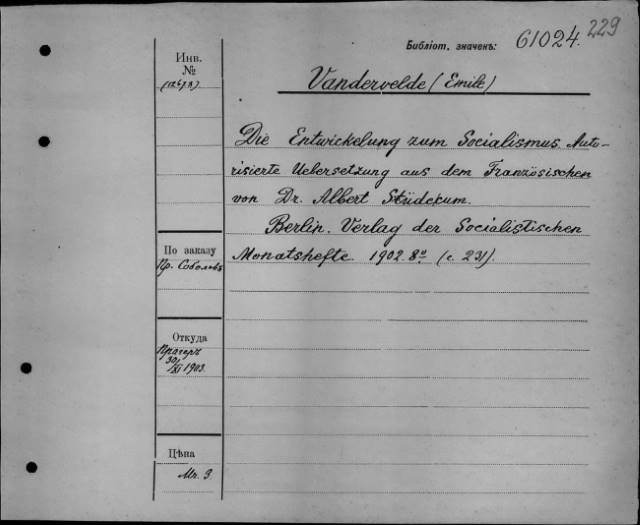 229
Библіот. значекъ: 61024.
Инв.
№
Vandervelde (Emile)
Die Entwickelung zum Socialismus. Auto-
risierte Uebersetzung aus dem Französischen
von Dr. Albert Südekum.
Berlin. Verlag der Socialistischen
Monatshefte. 1902. 8° (с. 231).
По заказу
Пр. Соболевъ
Откуда
Прагеръ
30/XI 1903.
Цѣна
Mr. 3.